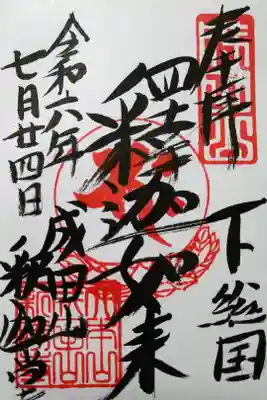 奉拝
下総国
釋迦如来
成田山
釈迦堂
令和六年
七月廿四日